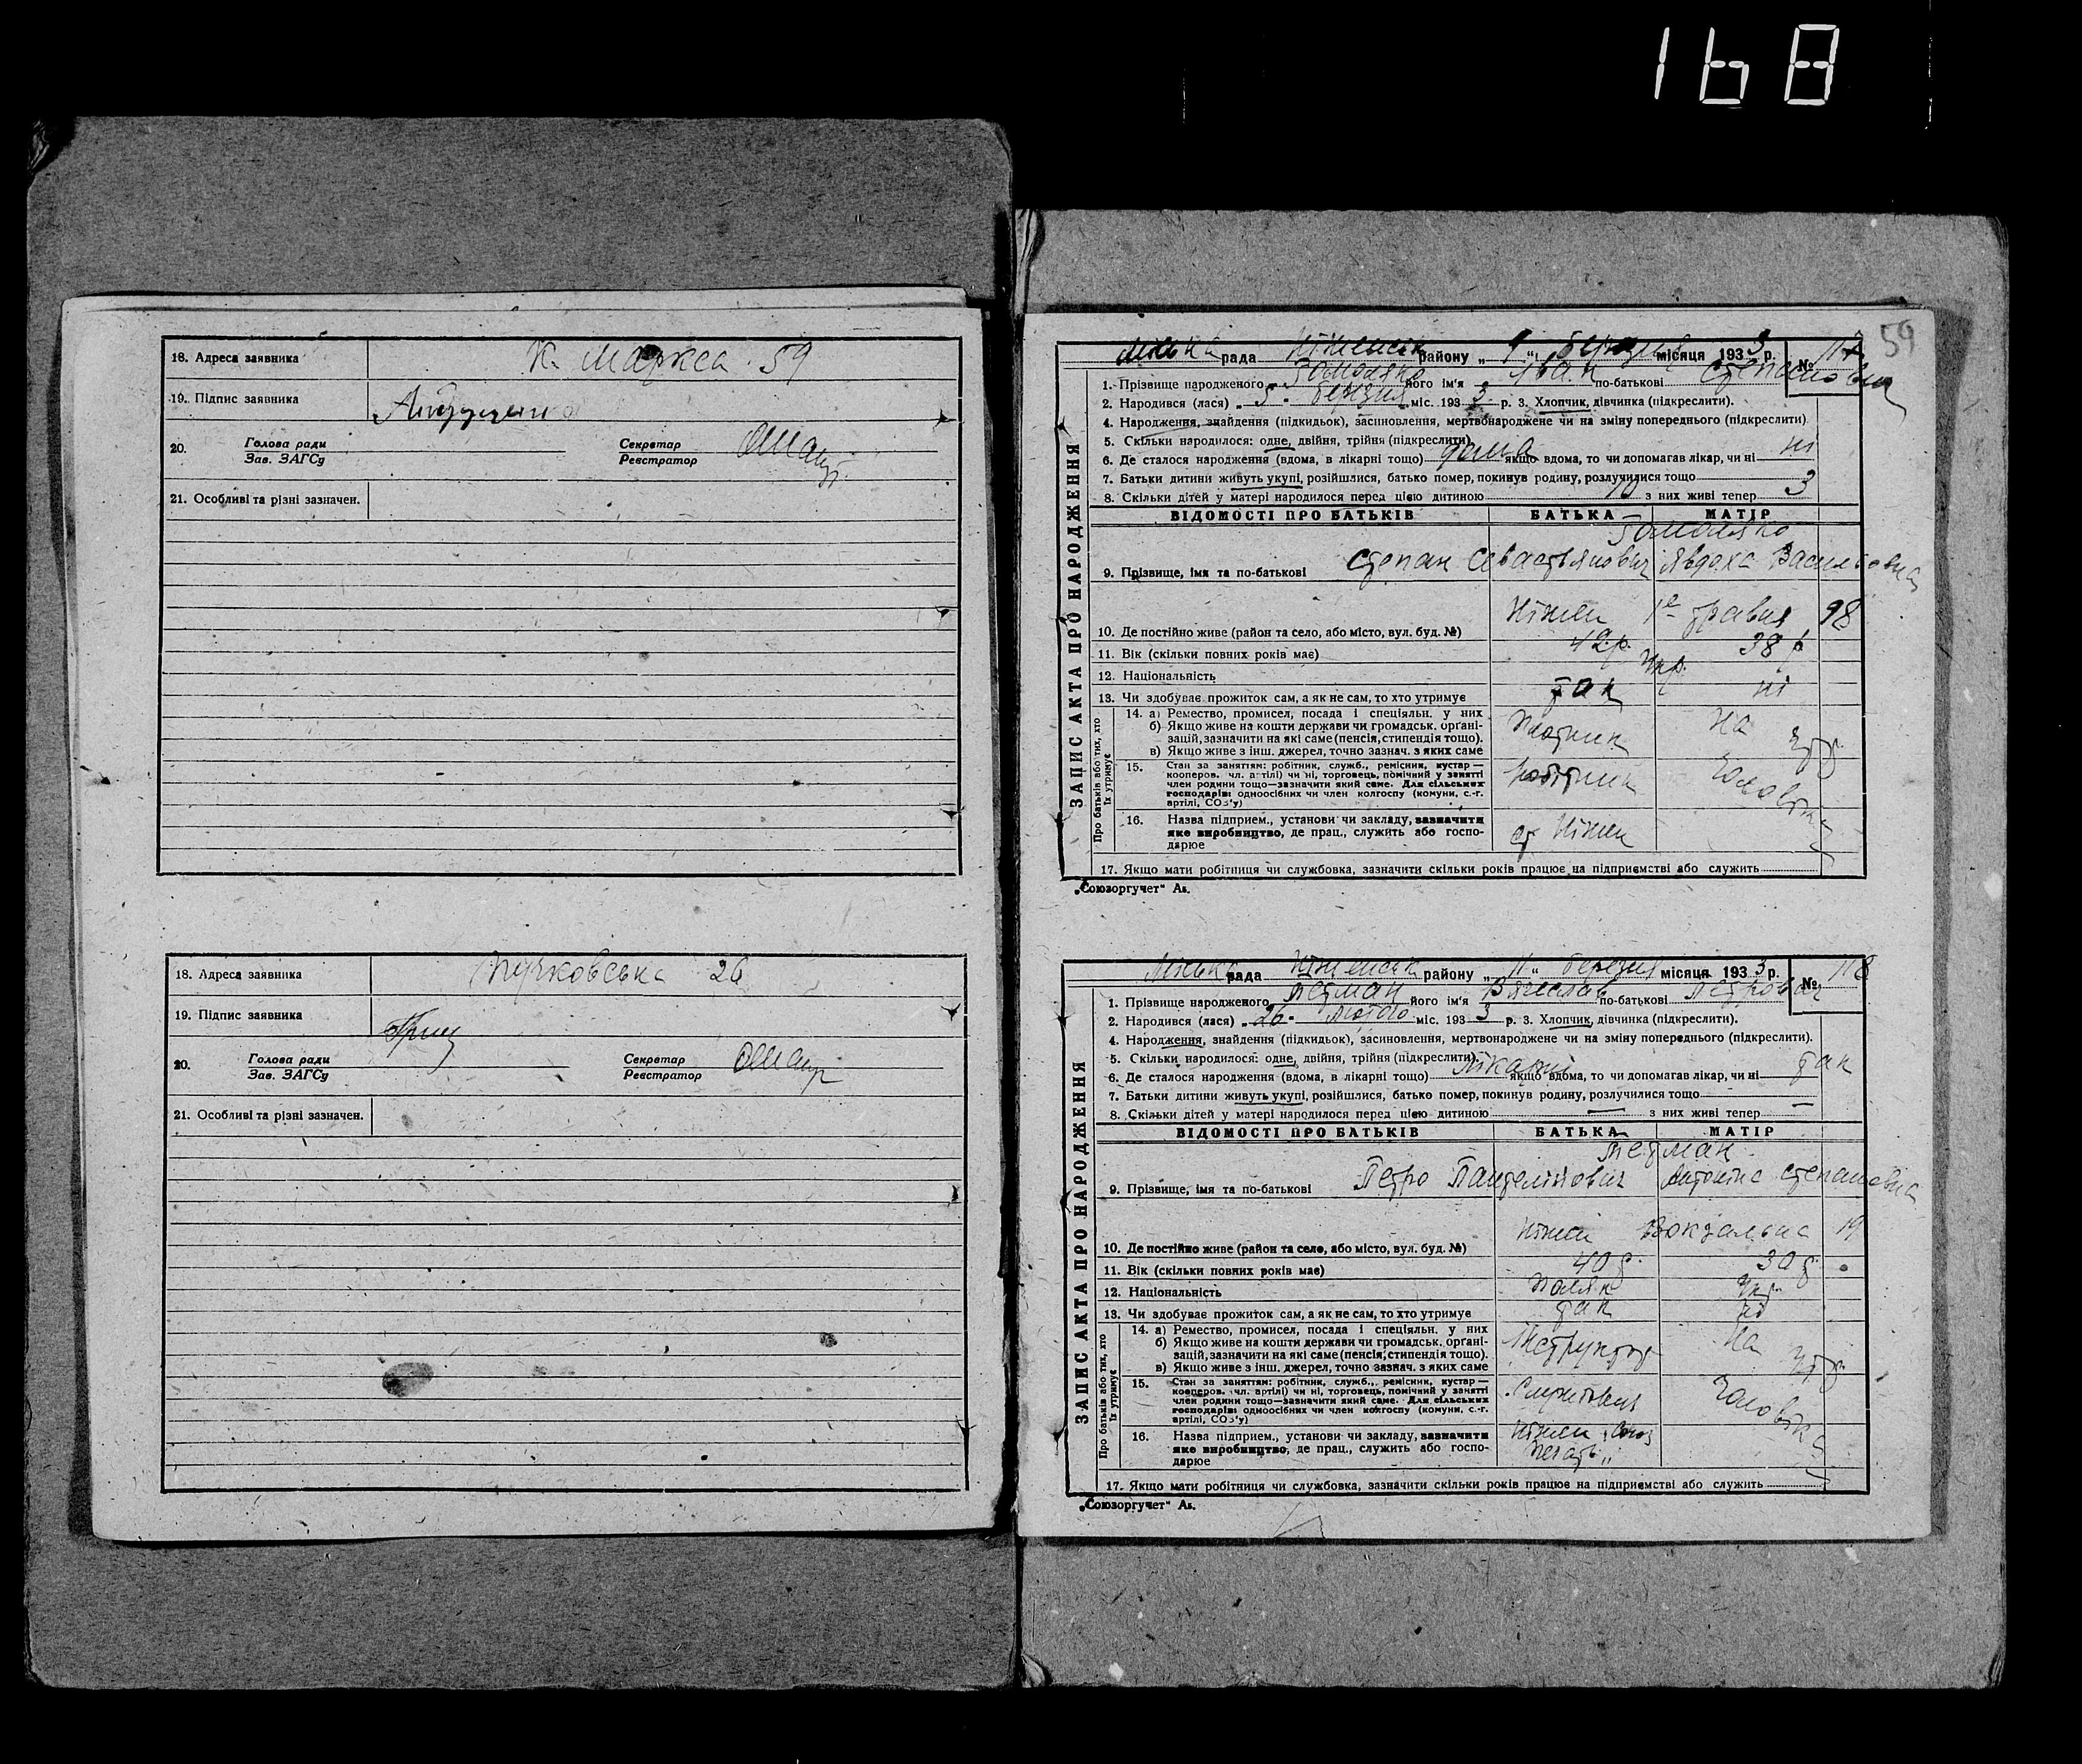 168
18. Адреса заявника К. Маркса 59
19. Підпис заявника
20. Голова ради Зав. ЗАГСу Секретар Реєстратор
21. Особливі та різні зазначен.
18. Адреса заявника 26
19. Підпис заявника
20. Голова ради Зав. ЗАГСу Секретар Реєстратор
21. Особливі та різні зазначен.
59
ЗАПИС АКТА ПРО НАРОДЖЕННЯ
Міська рада Ніженськ району „ “ березня місяця 1933 р. № 117
1. Прізвище народженого його ім'я Іван по-батькові Степанович
2. Народився (лася) „5“ березня міс. 1933 р. 3. Хлопчик, дівчинка (підкреслити).
4. Народження, знайдення (підкидьок), засиновлення, мертвонароджене чи на зміну попереднього (підкреслити)
5. Скільки народилося: одне, двійня, трійня (підкреслити)
6. Де сталося народження (вдома, в лікарні тощо) дома якщо вдома, то чи допомагав лікар, чи ні ні
7. Батьки дитини живуть укупі, розійшлися, батько помер, покинув родину, розлучилися тощо
8. Скільки дітей у матері народилося перед цією дитиною 10 з них живі тепер 3
ВІДОМОСТІ ПРО БАТЬКІВ БАТЬКА МАТІР
9. Прізвище, імя та по-батькові Степан Севастьянович Явдоха Васильовна
10. Де постійно живе (район та село, або місто, вул. буд. №) Ніжен 1е травня 98
11. Вік (скільки повних років має) 42 р. 38 р
12. Національність Укр.
13. Чи здобуває прожиток сам, а як не сам, то хто утримує так ні
Про батьків або тих, хто їх утримує
14. а) Ремество, промисел, посада і спеціяльн. у них
б) Якщо живе на кошти держави чи громадськ. органі-
зацій, зазначити на які саме (пенсія, стипендія тощо).
в) Якщо живе з інш. джерел, точно зазнач. з яких саме
Плотник На утр
15. Стан за заняттям: робітник, служб., ремісник, кустар—
кооперов. чл. артілі) чи ні, торговець, помічний у занятті
член родини тощо—зазначити який саме. Для сільських
господарів: одноосібних чи член колгоспу (комуни, с.-г.
артілі, СОЗ'у)
робітник Чоловіка
16. Назва підприєм., установи чи закладу, зазначити
яке виробництво, де прац., служить або госпо-
дарює
ст Ніжен
17. Якщо мати робітниця чи службовка, зазначити скільки років працює на підприємстві або служить
„Союзоргучет“ Ав.
ЗАПИС АКТА ПРО НАРОДЖЕННЯ
Міська рада Ніженськ району „11“ березня місяця 1933 р. № 118
1. Прізвище народженого його ім'я Вячеслав по-батькові Петрович
2. Народився (лася) „26“ лютого міс. 1933 р. 3. Хлопчик, дівчинка (підкреслити).
4. Народження, знайдення (підкидьок), засиновлення, мертвонароджене чи на зміну попереднього (підкреслити).
5. Скільки народилося: одне, двійня, трійня (підкреслити).
6. Де сталося народження (вдома, в лікарні тощо) лікарні якщо вдома, то чи допомагав лікар, чи ні так
7. Батьки дитини живуть укупі, розійшлися, батько помер, покинув родину, розлучилися тощо
8. Скільки дітей у матері народилося перед цією дитиною — з них живі тепер —
ВІДОМОСТІ ПРО БАТЬКІВ БАТЬКА МАТІР
9. Прізвище, імя та по-батькові Петро Антоніна Степановна
10. Де постійно живе (район та село, або місто, вул. буд. №) Ніжен Вокзальна 19
11. Вік (скільки повних років має) 40 р. 30 р.
12. Національність Поляк Укр.
13. Чи здобуває прожиток сам, а як не сам, то хто утримує так ні
Про батьків або тих, хто їх утримує
14. а) Ремество, промисел, посада і спеціяльн. у них
б) Якщо живе на кошти держави чи громадськ. органі-
зацій, зазначити на які саме (пенсія, стипендія тощо).
в) Якщо живе з інш. джерел, точно зазнач. з яких саме
Інструктор На утр
15. Стан за заняттям: робітник, служб., ремісник, кустар—
кооперов. чл. артілі) чи ні, торговець, помічний у занятті
член родини тощо—зазначити який саме. Для сільських
господарів: одноосібних чи член колгоспу (комуни, с.-г.
артілі, СОЗ'у)
Чоловіка
16. Назва підприєм., установи чи закладу, зазначити
яке виробництво, де прац., служить або госпо-
дарює
Ніжен „Союз
Печать“
17. Якщо мати робітниця чи службовка, зазначити скільки років працює на підприємстві або служить
„Союзоргучет“ Ав.